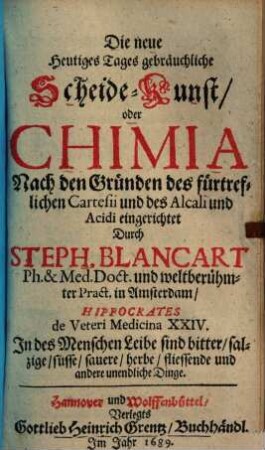 Die neue
Heutiges Tages gebräuchliche
Scheide-Kunst/
oder
CHIMIA
Nach den Gründen des fürtref-
lichen Cartesii und des Alcali und
Acidi eingerichtet
Durch
STEPH. BLANCART
Ph. & Med. Doct. und weltberühm-
ter Pract. in Amsterdam/
HIPPOCRATES
de Veteri Medicina XXIV.
In des Menschen Leibe sind bitter/ sal-
zige/ süsse/ sauere/ herbe/ fliessende und
andere unendliche Dinge.
Hannover und Wolffenbüttel/
Verlegts
Gottlieb Heinrich Grentz/ Buchhändl.
Im Jahr 1689.